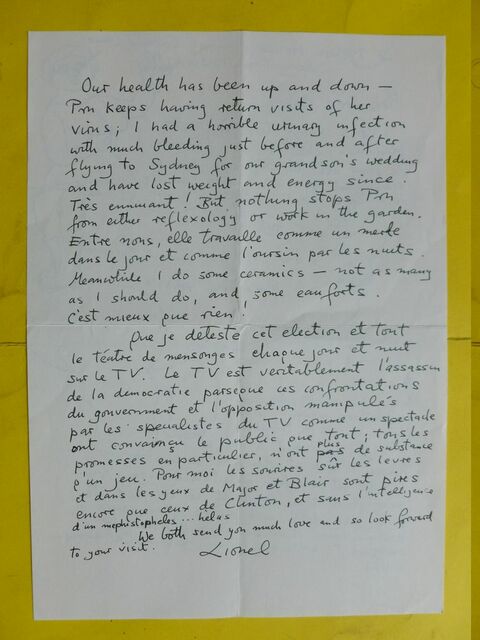 Our health has been up and down —
Prn keeps having return visits of her
virus; I had a horrible urinary infection
with much bleeding just before and after
flying to Sydney for our grandson's wedding
and have lost weight and energy since.
Très ennuant! But nothing stops Prn
from either reflexology or work in the garden.
Entre nous, elle travaille comme un merle
dans le jour et comme l'oursin par les nuits.
Meanwhile I do some ceramics — not as many
as I should do, and some eauforts.
C'est mieux que rien!
Que je déteste cet election et tout
le téatre de mensonges chaque jour et nuit
sur le TV. Le TV est veritablement l'assassin
de la democratie parseque ces confrontations
du government et l'opposition manipulés
par les spesualistes du TV comme un spectacle
ont convainçu le public que tout; tous les
promesses en particulier, n'ont plus de substance
q'un jeu. Pour moi les sourires sûr les levres
et dans les yeux de Major et Blair sont pires
encore que ceux de Clinton, et sans l'intelligence
d'un mephistopheles... helas
We both send you much love and so look forward
to your visit. Lionel